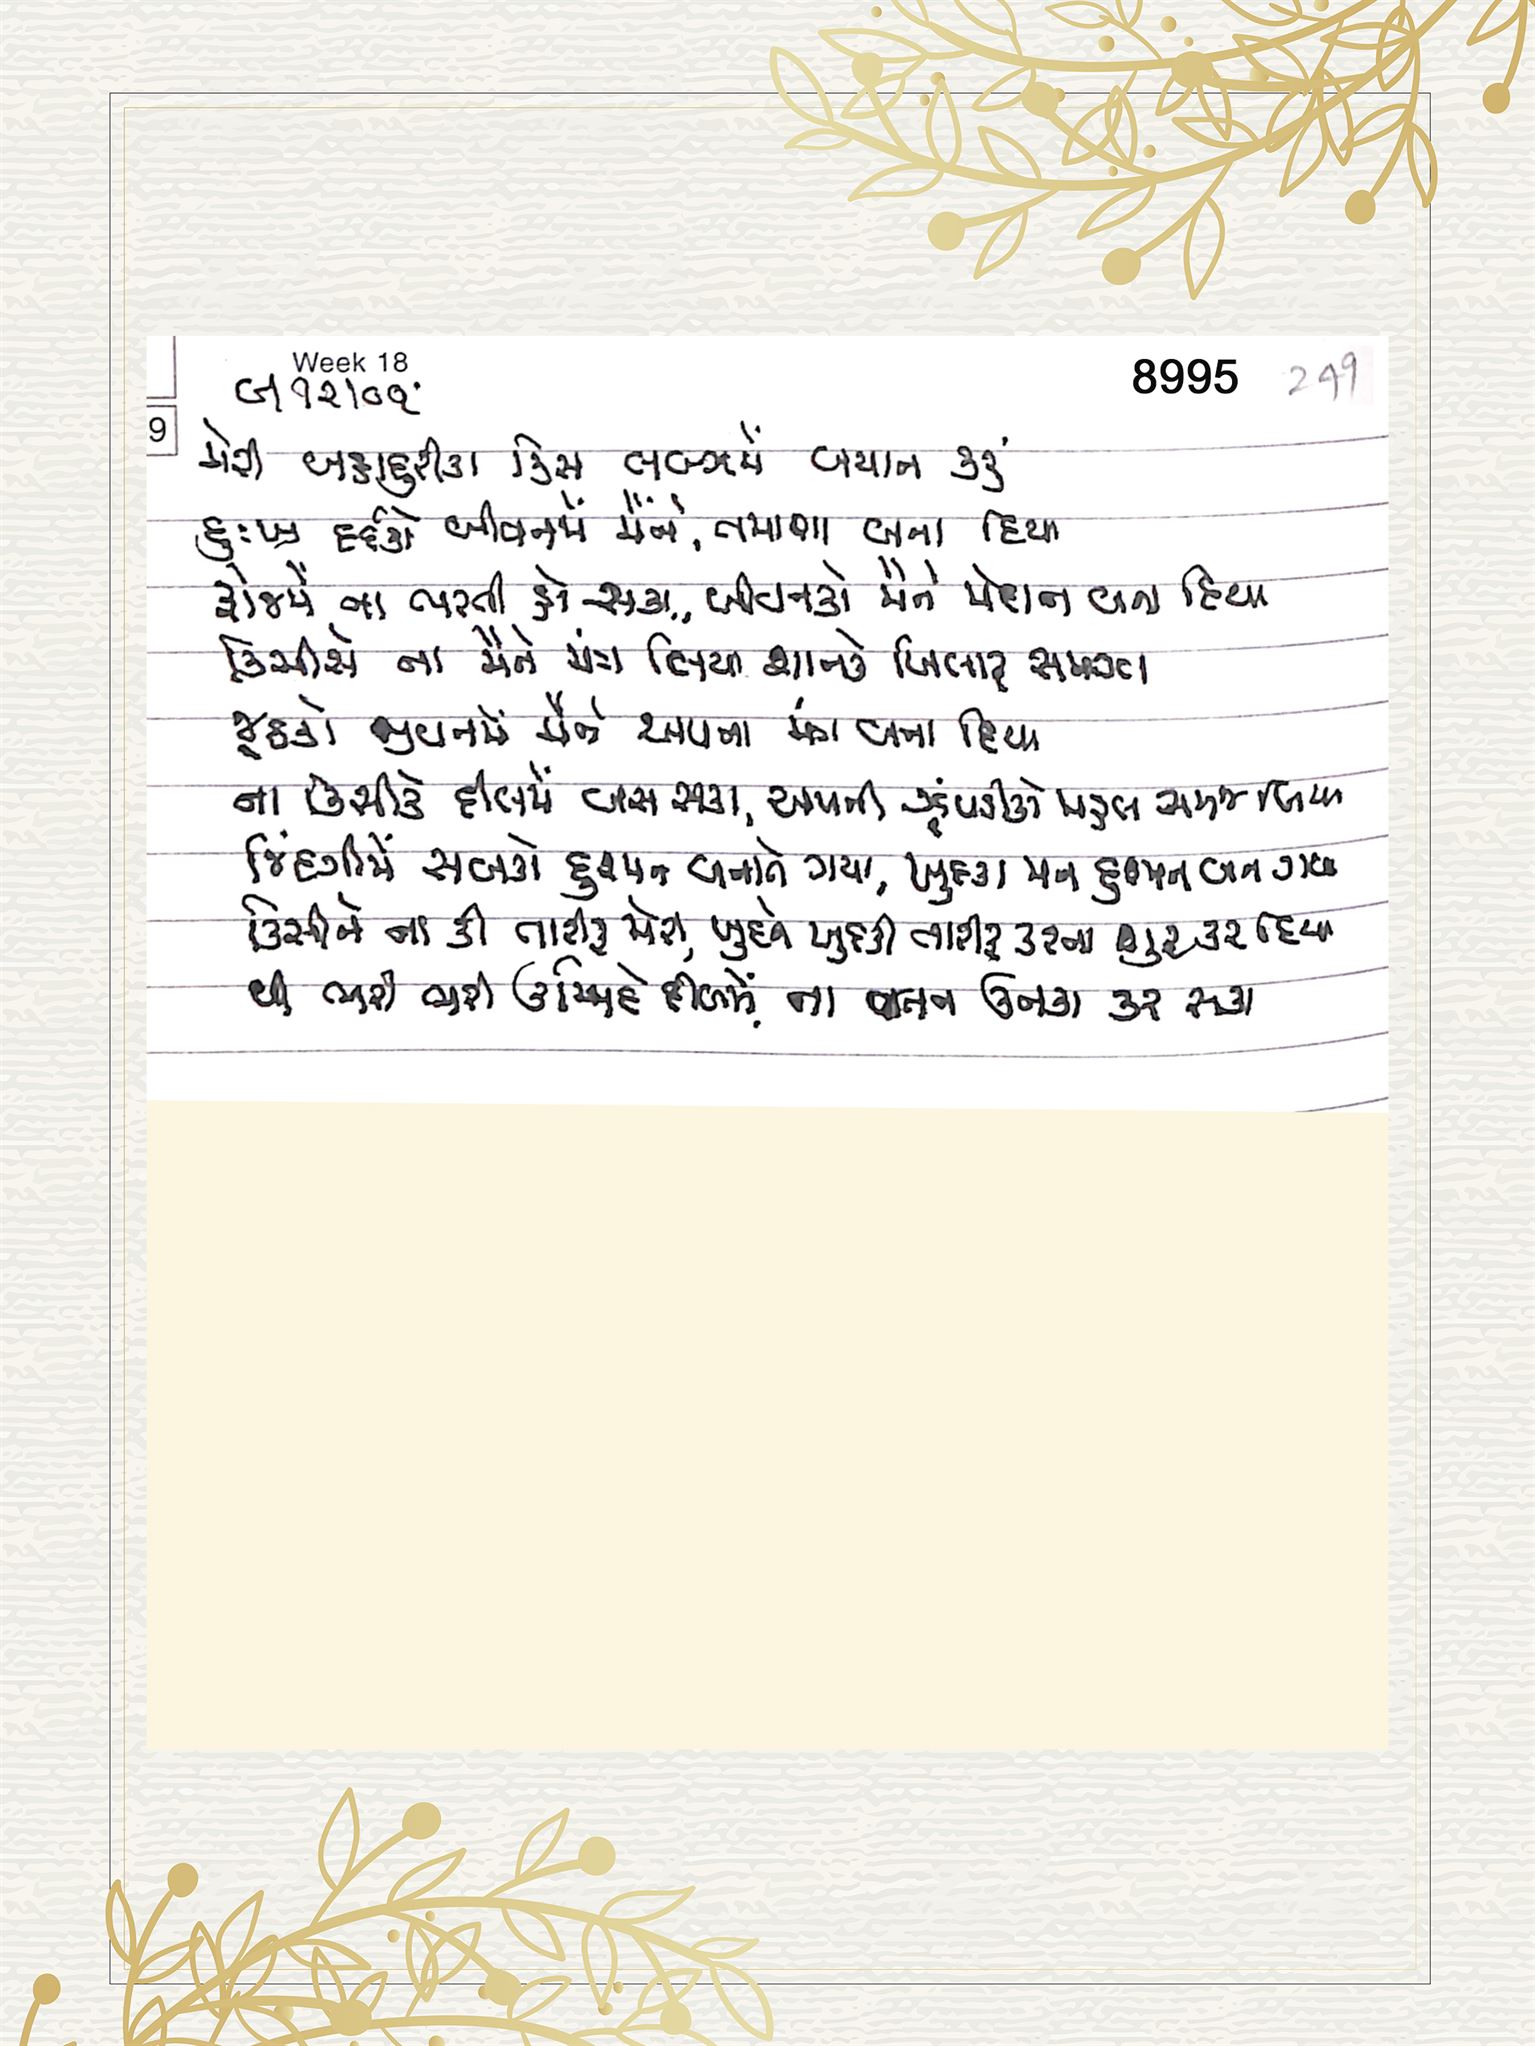 Week 18
8995
249
9
મેરી બહાદુરીકા કિસ લબ્ઝમેં બયાન કરું
દુઃખ દર્દકો જીવનમેં મૈંને, તમાશા બના દિયા
ફોજમેં ના ભરતી હો સકા, જીવનકો મૈંને મેદાન બના દિયા
કિસીસે ના મૈંને લિયા શાનકે ખિલાફ સમજા
જૂઠકો જીવનમેં મૈંને અપના બના દિયા
ના કિસીકે દીલમેં બસ સકા, અપની ઝૂંપડીકો મહલ સમજ લિયા
જિંદગીમેં સબકો દુશ્મન બનાતે ગયા, ખુદકા મન દુશ્મન બન ગયા
કિસીને ના કી તારીફ મેરી, ખુદને ખુદકી તારીફ કરના શુરૂ કર દિયા
થી ભારી ભારી ઉમ્મિદે દીલમેં, ના જતન ઉનકા કર સકા